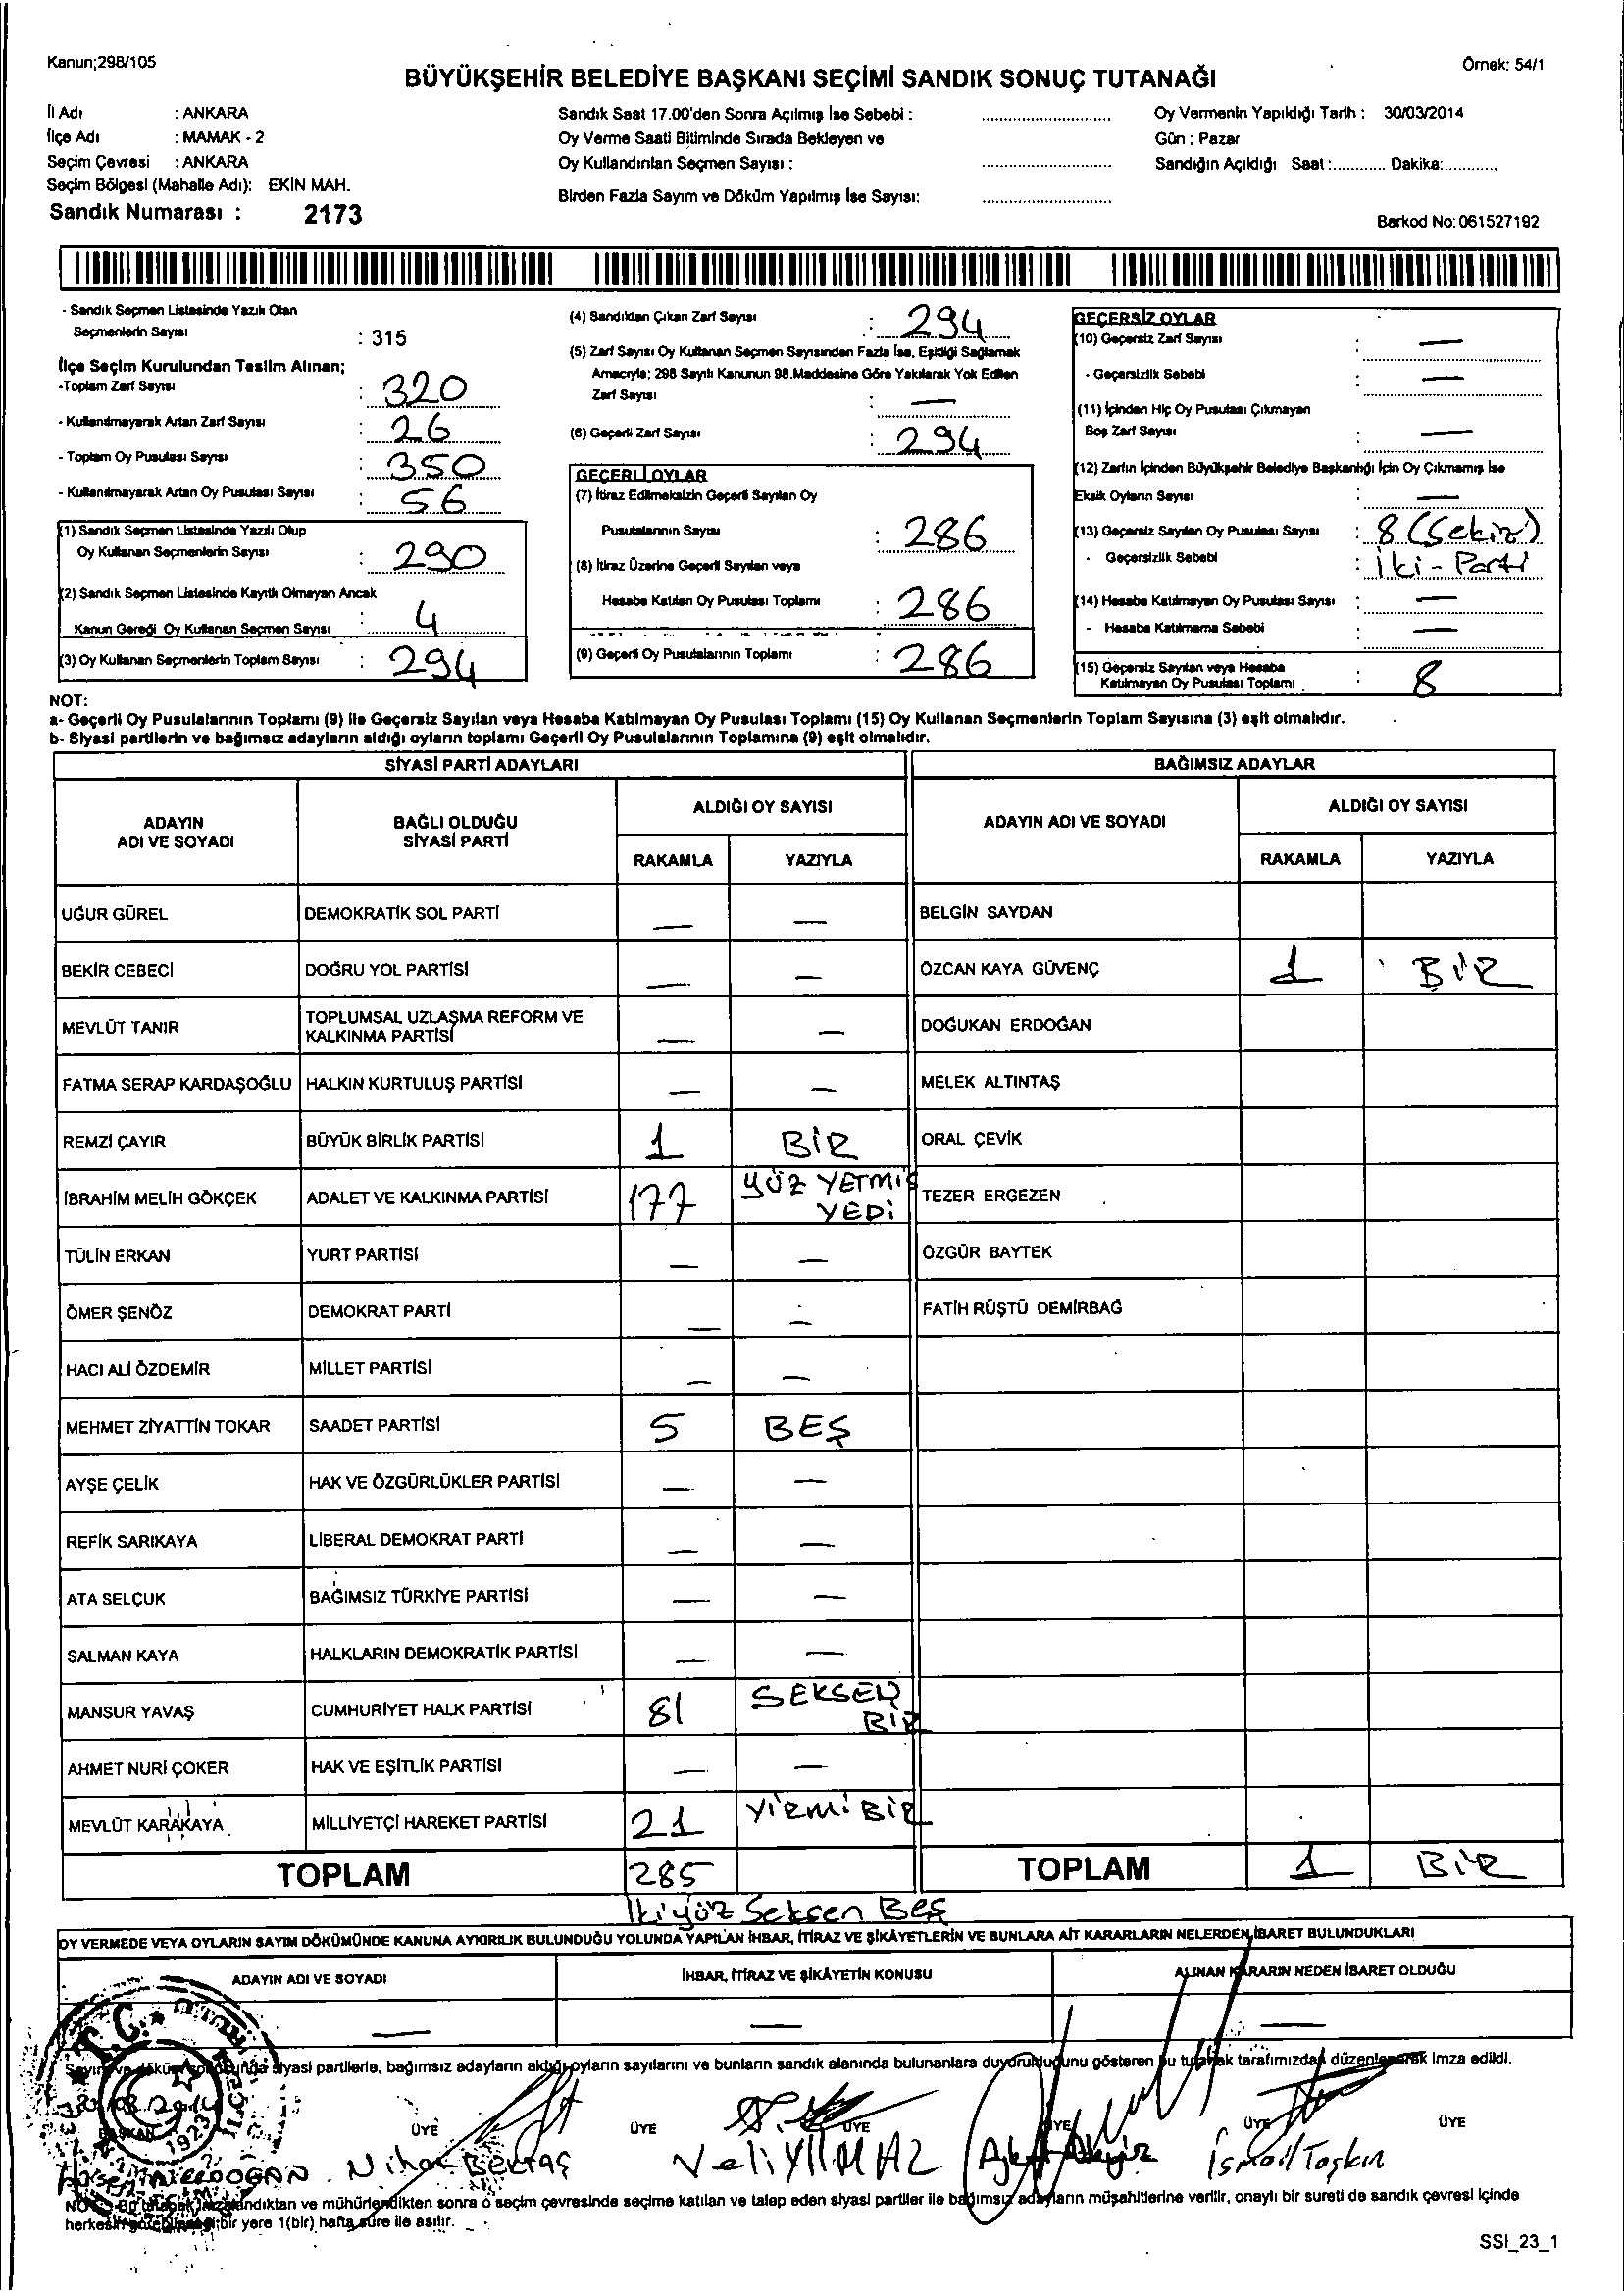 Kanun;298/105
Örnek: 54/1
BÜYÜKŞEHİR BELEDİYE BAŞKANI SEÇİMİ SANDIK SONUÇ TUTANAĞI
İl Adı : ANKARA
İlçe Adı : MAMAK - 2
Seçim Çevresi : ANKARA
Seçim Bölgesi (Mahalle Adı): EKİN MAH.
Sandık Numarası : 2173
Sandık Saat 17.00'den Sonra Açılmış İse Sebebi : ..............................
Oy Verme Saati Bitiminde Sırada Bekleyen ve
Oy Kullandırılan Seçmen Sayısı : ..............................
Birden Fazla Sayım ve Döküm Yapılmış İse Sayısı: ..............................
Oy Vermenin Yapıldığı Tarih : 30/03/2014
Gün : Pazar
Sandığın Açıldığı Saat :............ Dakika:............
Barkod No: 061527192
- Sandık Seçmen Listesinde Yazılı Olan
Seçmenlerin Sayısı : 315
İlçe Seçim Kurulundan Teslim Alınan;
-Toplam Zarf Sayısı : 320
- Kullanılmayarak Artan Zarf Sayısı : 26
- Toplam Oy Pusulası Sayısı : 350
- Kullanılmayarak Artan Oy Pusulası Sayısı : 56
(1) Sandık Seçmen Listesinde Yazılı Olup
Oy Kullanan Seçmenlerin Sayısı : 290
(2) Sandık Seçmen Listesinde Kayıtlı Olmayan Ancak
Kanun Gereği Oy Kullanan Seçmen Sayısı : 4
(3) Oy Kullanan Seçmenlerin Toplam Sayısı : 294
(4) Sandıktan Çıkan Zarf Sayısı : 294
(5) Zarf Sayısı Oy Kullanan Seçmen Sayısından Fazla İse, Eşitliği Sağlamak
Amacıyla; 298 Sayılı Kanunun 98.Maddesine Göre Yakılarak Yok Edilen
Zarf Sayısı : —
(6) Geçerli Zarf Sayısı : 294
GEÇERLİ OYLAR
(7) İtiraz Edilmeksizin Geçerli Sayılan Oy
Pusulalarının Sayısı : 286
(8) İtiraz Üzerine Geçerli Sayılan veya
Hesaba Katılan Oy Pusulası Toplamı : 286
(9) Geçerli Oy Pusulalarının Toplamı : 286
GEÇERSİZ OYLAR
(10) Geçersiz Zarf Sayısı : —
- Geçersizlik Sebebi : —
(11) İçinden Hiç Oy Pusulası Çıkmayan
Boş Zarf Sayısı : —
(12) Zarfın İçinden Büyükşehir Belediye Başkanlığı İçin Oy Çıkmamış İse
Eksik Oyların Sayısı : —
(13) Geçersiz Sayılan Oy Pusulası Sayısı : 8 (Sekiz)
- Geçersizlik Sebebi : İki - Parti
(14) Hesaba Katılmayan Oy Pusulası Sayısı : —
- Hesaba Katılmama Sebebi : —
(15) Geçersiz Sayılan veya Hesaba
Katılmayan Oy Pusulası Toplamı : 8
NOT:
a- Geçerli Oy Pusulalarının Toplamı (9) ile Geçersiz Sayılan veya Hesaba Katılmayan Oy Pusulası Toplamı (15) Oy Kullanan Seçmenlerin Toplam Sayısına (3) eşit olmalıdır.
b- Siyasi partilerin ve bağımsız adayların aldığı oyların toplamı Geçerli Oy Pusulalarının Toplamına (9) eşit olmalıdır.
SİYASİ PARTİ ADAYLARI
BAĞIMSIZ ADAYLAR
ADAYIN
ADI VE SOYADI
BAĞLI OLDUĞU
SİYASİ PARTİ
ALDIĞI OY SAYISI
RAKAMLA YAZIYLA
ADAYIN ADI VE SOYADI
ALDIĞI OY SAYISI
RAKAMLA YAZIYLA
UĞUR GÜREL DEMOKRATİK SOL PARTİ — — BELGİN SAYDAN
BEKİR CEBECİ DOĞRU YOL PARTİSİ — — ÖZCAN KAYA GÜVENÇ 1 BİR
MEVLÜT TANIR TOPLUMSAL UZLAŞMA REFORM VE
KALKINMA PARTİSİ — — DOĞUKAN ERDOĞAN
FATMA SERAP KARDAŞOĞLU HALKIN KURTULUŞ PARTİSİ — — MELEK ALTINTAŞ
REMZİ ÇAYIR BÜYÜK BİRLİK PARTİSİ 1 BİR ORAL ÇEVİK
İBRAHİM MELİH GÖKÇEK ADALET VE KALKINMA PARTİSİ 177 YÜZ YETMİŞ
YEDİ TEZER ERGEZEN
TÜLİN ERKAN YURT PARTİSİ — — ÖZGÜR BAYTEK
ÖMER ŞENÖZ DEMOKRAT PARTİ — — FATİH RÜŞTÜ DEMİRBAĞ
HACI ALİ ÖZDEMİR MİLLET PARTİSİ — —
MEHMET ZİYATTİN TOKAR SAADET PARTİSİ 5 BEŞ
AYŞE ÇELİK HAK VE ÖZGÜRLÜKLER PARTİSİ — —
REFİK SARIKAYA LİBERAL DEMOKRAT PARTİ — —
ATA SELÇUK BAĞIMSIZ TÜRKİYE PARTİSİ — —
SALMAN KAYA HALKLARIN DEMOKRATİK PARTİSİ — —
MANSUR YAVAŞ CUMHURİYET HALK PARTİSİ 81 SEKSEN
BİR
AHMET NURİ ÇOKER HAK VE EŞİTLİK PARTİSİ — —
MEVLÜT KARAKAYA MİLLİYETÇİ HAREKET PARTİSİ 21 YİRMİ BİR
TOPLAM 285 TOPLAM 1 BİR
İkiyüz Seksen Beş
OY VERMEDE VEYA OYLARIN SAYIM DÖKÜMÜNDE KANUNA AYKIRILIK BULUNDUĞU YOLUNDA YAPILAN İHBAR, İTİRAZ VE ŞİKÂYETLERİN VE BUNLARA AİT KARARLARIN NELERDEN İBARET BULUNDUKLARI
ADAYIN ADI VE SOYADI İHBAR, İTİRAZ VE ŞİKÂYETİN KONUSU ALINAN KARARIN NEDEN İBARET OLDUĞU
— — —
T.C.
Sayım ve döküm sonucunda siyasi partilerle, bağımsız adayların aldığı oyların sayılarını ve bunların sandık alanında bulunanlara duyurulduğunu gösteren bu tutanak tarafımızdan düzenlenerek imza edildi.
30/03/2014
1923
BAŞKAN ÜYE ÜYE ÜYE ÜYE ÜYE ÜYE
Nihat Bektaş Veli YILMAZ İsmail Taşkın
NOT: Bu tutanak imzalandıktan ve mühürlendikten sonra o seçim çevresinde seçime katılan ve talep eden siyasi partiler ile bağımsız adayların müşahitlerine verilir, onaylı bir sureti de sandık çevresi içinde
herkesin görebileceği bir yere 1(bir) hafta süre ile asılır.
SSI_23_1